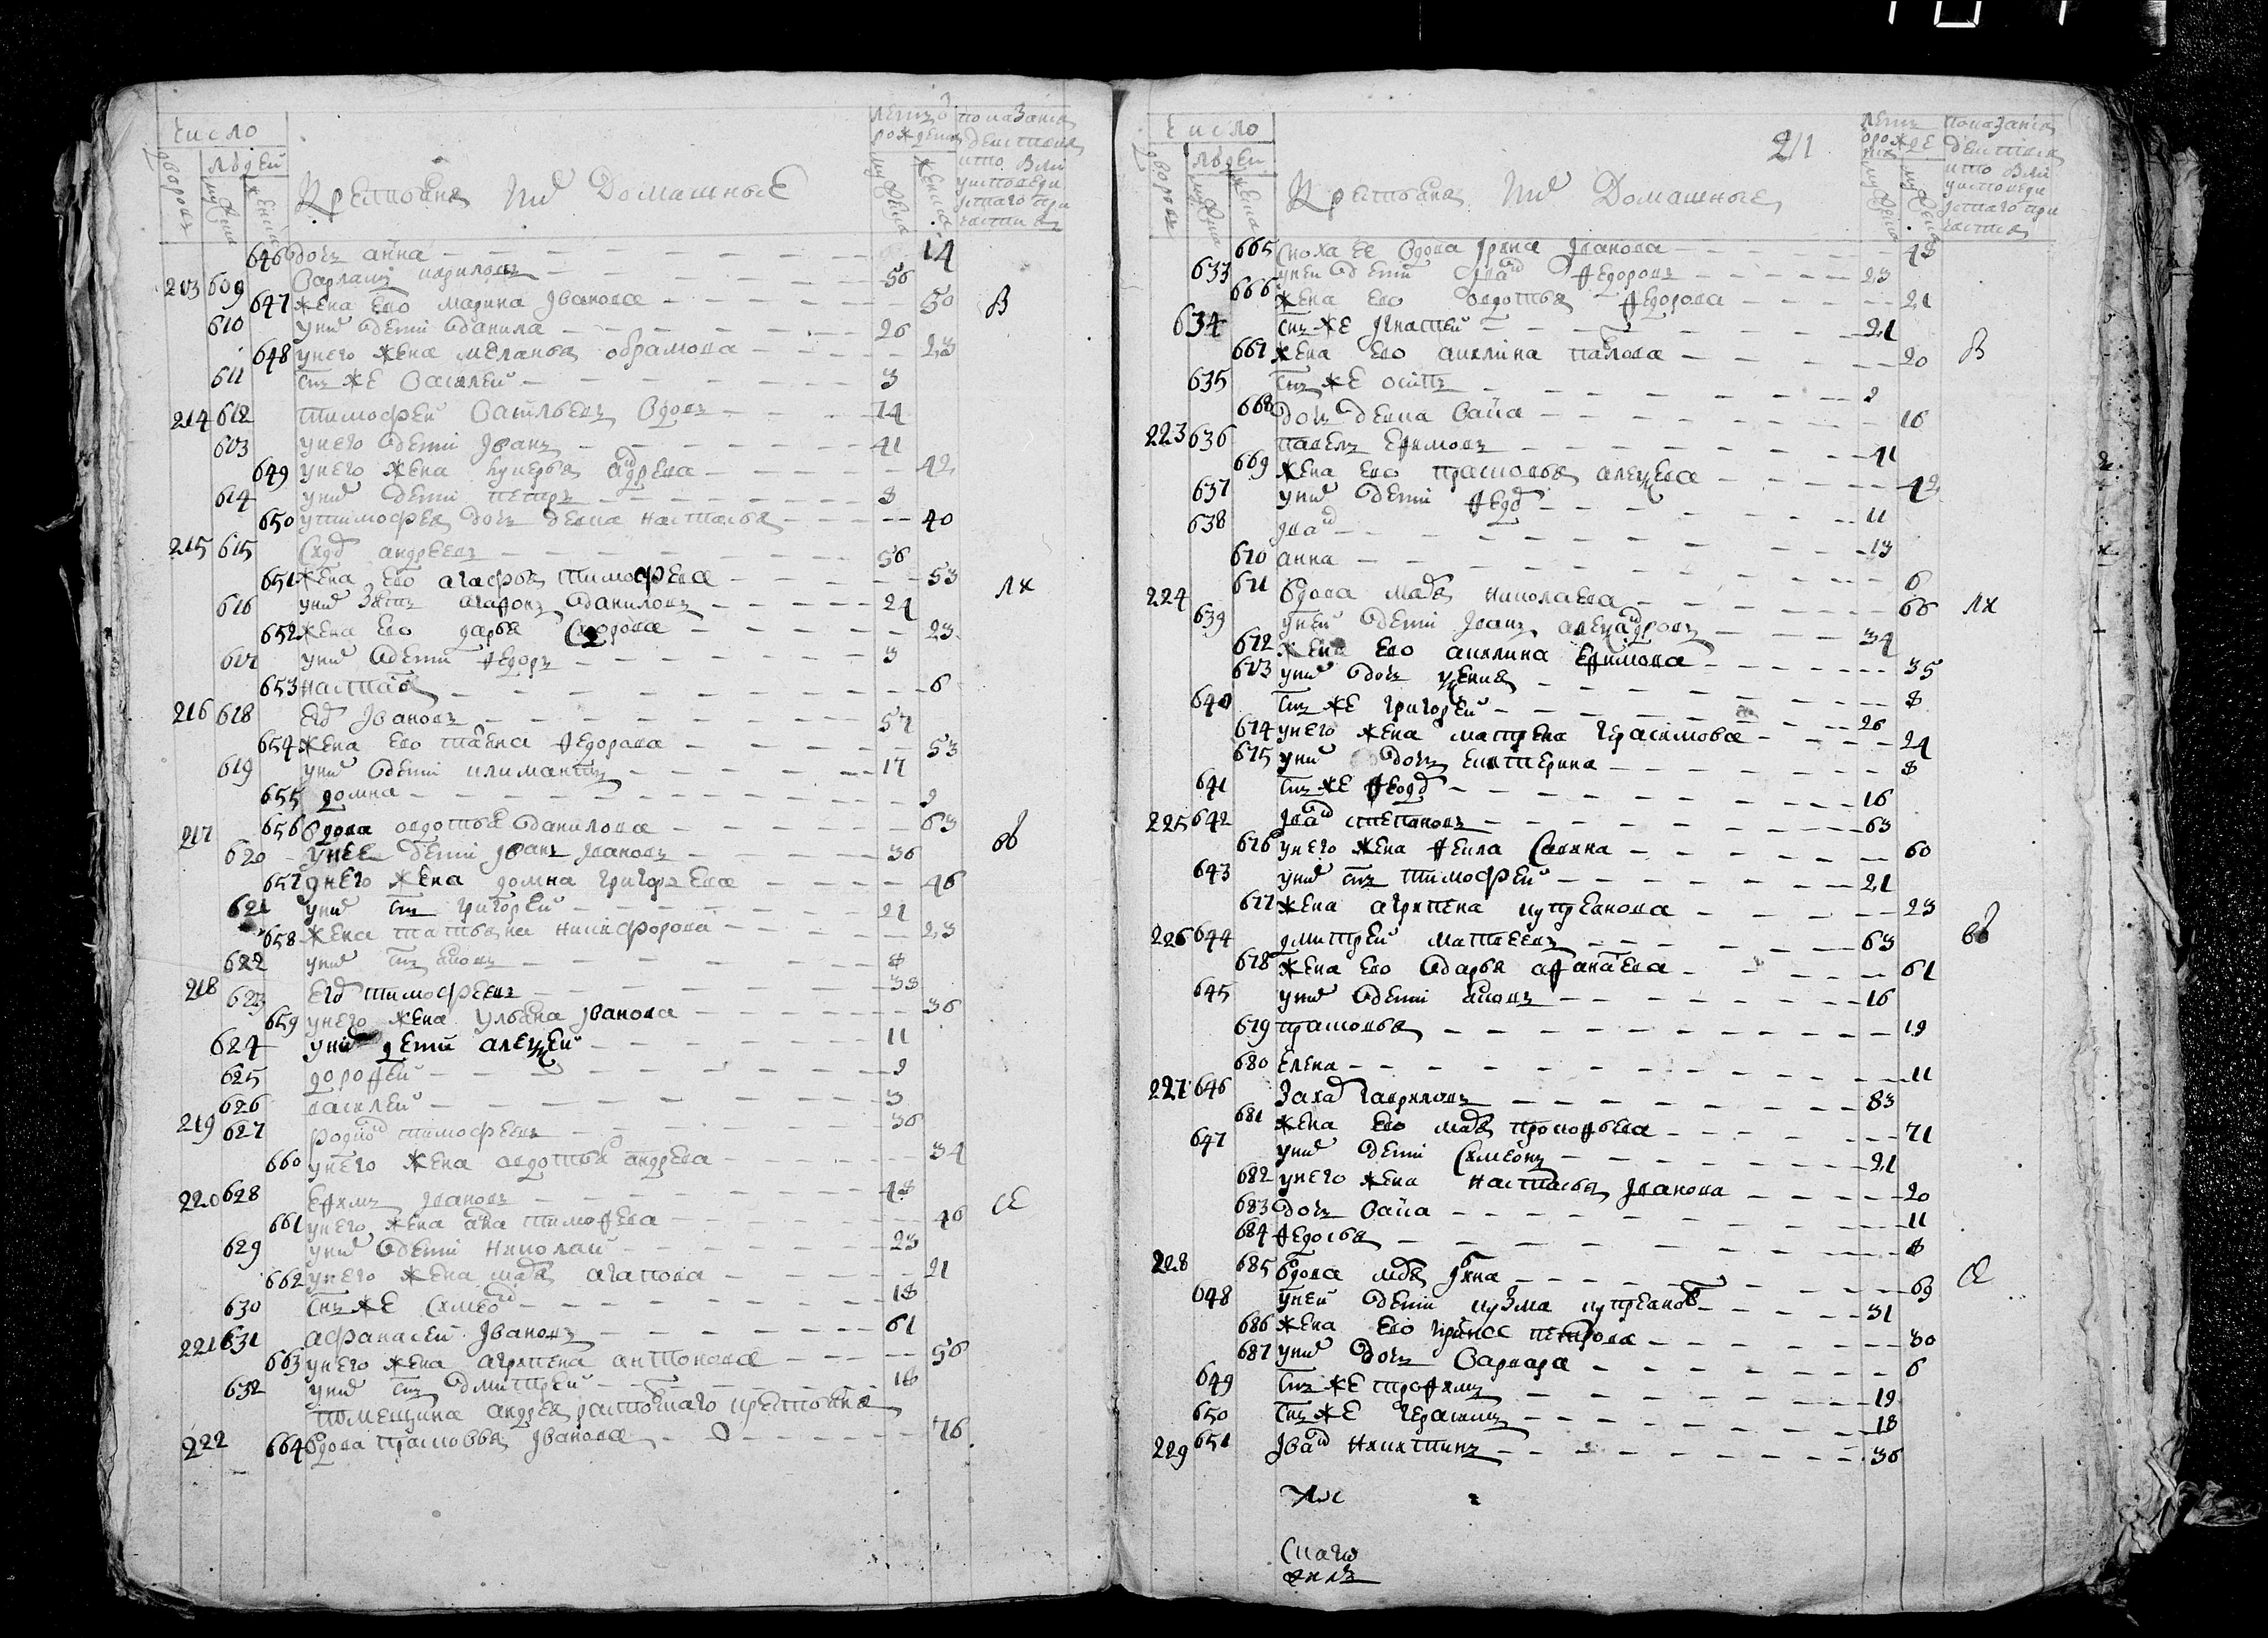 число
дворовъ
людей
мужска
женска
Крестьяня ихъ Домашные
летъ о рождени
показание действия кто были у исповеди и святаго причастия
646 дочь анна — 14
213 609 Варламъ кириловъ — 56
647 жена ево марина Іванова — 50
610 унихъ дети данила — 26
648 унего жена меланья абрамова — 23
611 сынъ же Василеи — 3
214 612 тимофеи Васильевъ Вдовъ — 74
613 унего дети Іванъ — 41
649 унего жена лукерья андреева — 42
614 унихъ дети петръ — 8
650 утимофея дочь девка настасья — 40
215 615 Сидоръ андреевъ — 56
651 жена ево агафья тимофеева — 53
616 унихъ зять агафонъ даниловъ — 24
652 жена ево дарья Сидорова — 23
617 унихъ дети Ѳедоръ — 3
653 настасья — 6
216 618 Егоръ Івановъ — 57
654 жена ево татьяна Ѳедорова — 53
619 унихъ дети климантъ — 17
655 домна — 9
217 656 Вдова авдотья данилова — 63
620 унее дети Іванъ Івановъ — 36
657 унего жена домна григорьева — 46
621 унихъ сынъ григореи — 21
658 жена татьяна никифорова — 23
622 унихъ сынъ яковъ — 8
218 623 Егоръ тимофеевъ — 38
659 унего жена Ульяна Іванова — 36
624 унихъ дети алексеи — 11
625 дорофеи — 9
626 василеи — 3
219 627 родионъ тимофеевъ — 36
660 унего жена авдотья андреева — 34
220 628 Ефимъ Івановъ — 48
661 унего жена анна тимофеева — 46
629 унихъ дети николаи — 23
662 унего жена марья агапова — 21
630 сынъ же Симеонъ — 18
221 631 афанасеи Івановъ — 61
663 унего жена агрипена антонова — 56
632 унихъ сынъ дмитреи — 18
помещика андрея крестьяня
222 664 Вдова прасковья Іванова — 76
211
число
дворовъ
людей
мужска
женска
Крестьяня ихъ Домашные
летъ о рожде
показания действия кто были у исповеди и святаго причастия
665 сноха ее вдова Ірина Іванова — 48
633 унеи дети Іванъ Ѳедоровъ — 23
666 жена ево авдотья Ѳедорова — 21
634 сынъ же Игнатеи — 21
667 жена ево акилина павлова — 20
635 сынъ же осипъ — 9
668 дочь девка васа — 16
223 636 павелъ Ефимовъ — 41
669 жена ево прасковья алексеева — 42
637 унихъ дети Ѳедоръ — 11
638 Іванъ — 13
670 анна — 6
224 671 Вдова марья николаева — 66
639 унеи дети Іванъ александровъ — 34
672 жена ево акилина Ефимова — 35
673 унихъ дочь ксения — 8
640 сынъ же григореи — 26
674 унего жена матрена герасимова — 24
675 унихъ дочь катерина — 8
641 сынъ же Ѳеодоръ — 16
225 642 Іванъ степановъ — 63
676 унего жена Ѳекла Савина — 60
643 унихъ сынъ тимофеи — 21
677 жена агрипена куприанова — 23
226 644 дмитреи матвеевъ — 63
678 жена ево дарья афанасьева — 61
645 унихъ дети яковъ — 16
679 прасковья — 19
680 Елена — 11
227 646 Захаръ гавриловъ — 83
681 жена ево марья прокофьева — 71
647 унихъ дети Симеонъ — 21
682 унего жена настасья Іванова — 20
683 дочь васа — 11
684 Ѳедосья — 8
228 685 Вдова марья — 69
648 унеи дети кузма куприановъ — 31
686 жена ево петрова — 30
687 унихъ дочь Варвара — 6
649 сынъ же трофимъ — 19
650 сынъ же герасимъ — 18
229 651 Іванъ никитинъ — 36